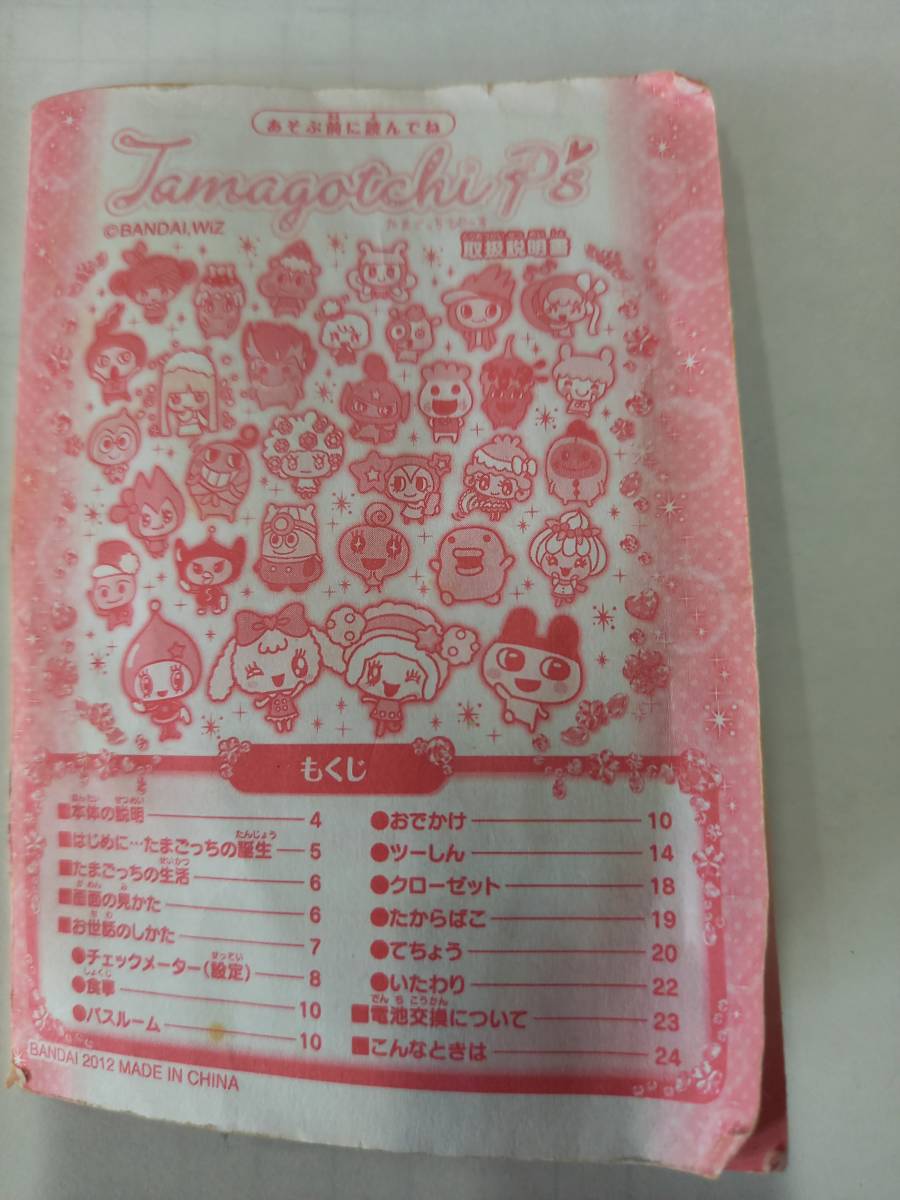 あそぶ前に読んでね
Tamagotchi P's
たまごっちピース
©BANDAI,WiZ
取扱説明書
もくじ
■本体の説明 4
■はじめに…たまごっちの誕生 5
■たまごっちの生活 6
■画面の見かた 6
■お世話のしかた 7
●チェックメーター(設定) 8
●食事 10
●バスルーム 10
●おでかけ 10
●ツーしん 14
●クローゼット 18
●たからばこ 19
●てちょう 20
●いたわり 22
■電池交換について 23
■こんなときは 24
BANDAI 2012 MADE IN CHINA